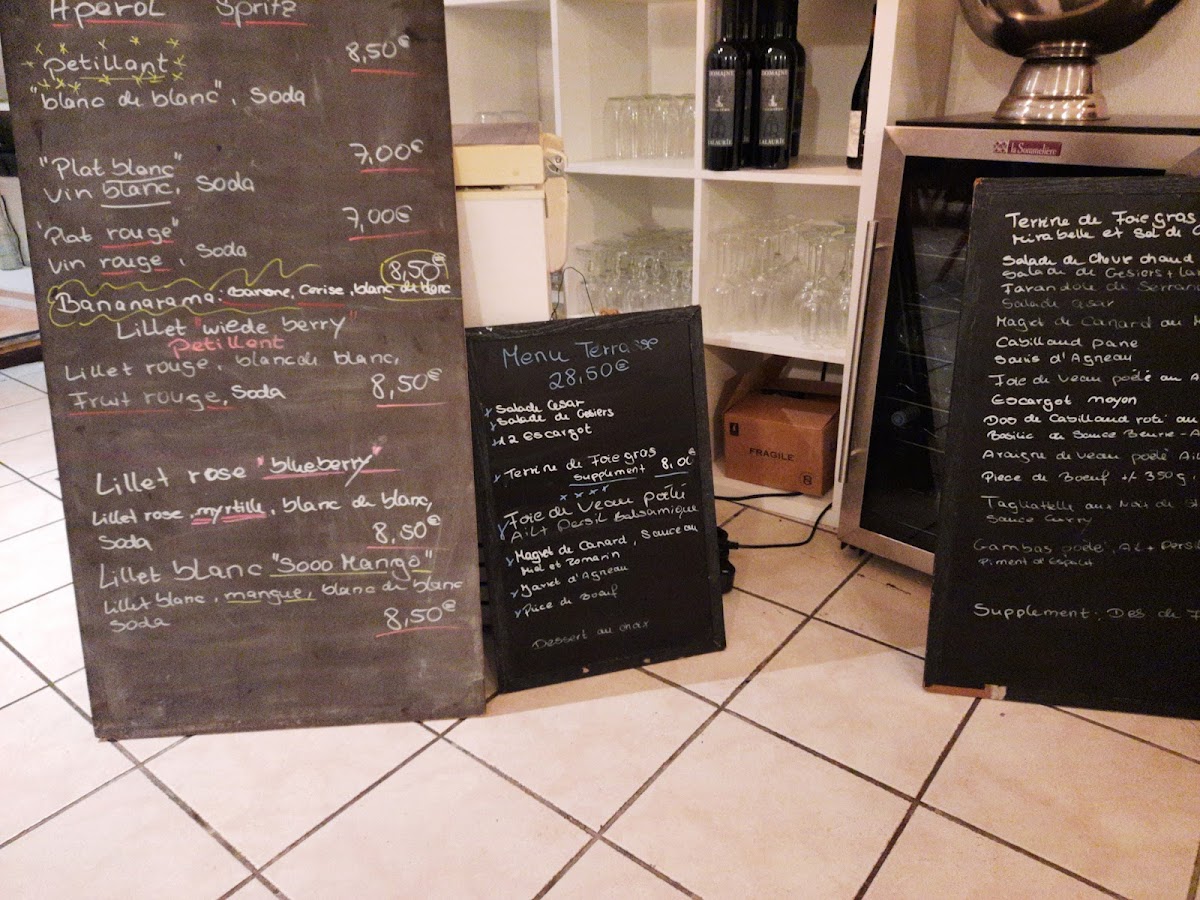 Aperol Spritz
petillant 8,50€
"blanc de blanc", Soda
"Plat blanc" 7,00€
Vin blanc, Soda
"Plat rouge" 7,00€
Vin rouge, Soda
8,50€
Bananarama: Banane, Cerise, blanc de blanc
Lillet "wiede berry"
Petillant
Lillet rouge, blanc de blanc,
Fruit rouge, Soda 8,50€
Lillet rose "blueberry"
Lillet rose, myrtille, blanc de blanc,
Soda 8,50€
Lillet blanc "Sooo Mango"
Lillet blanc, mangue, blanc de blanc
Soda 8,50€
Menu Terrasse
28,50€
Salade Cesar
Salade de Gesiers
12 Escargot
Terrine de Foie gras
supplement 8,00
Foie de Veau poêlé
Ail + Persil Balsamique
Magret de Canard, Sauce au
Miel et Romarin
Jarret d'Agneau
Pièce de Boeuf
Dessert au choix
DOMAINE
DOMAINE
FRAGILE
la Sommelière
Terrine de Foie gras
Mirabelle et Sel de
Salade de Chevre chaud
Salade de Gesiers + La
Farandole de Serrano
Salade Cesar
Magret de Canard au
Cabillaud pane
Souris d'Agneau
Foie de Veau poêlé au
Escargot moyon
Dos de Cabillaud roti au
Basilic de Sauce Beurre
Araigne de Veau poêlé Ail
Piece de Boeuf +/- 350g
Tagliatelle aux Noix de
Sauce Curry
Gambas poêlé, Ail + Persil
Piment d'Espelet
Supplement: Des de